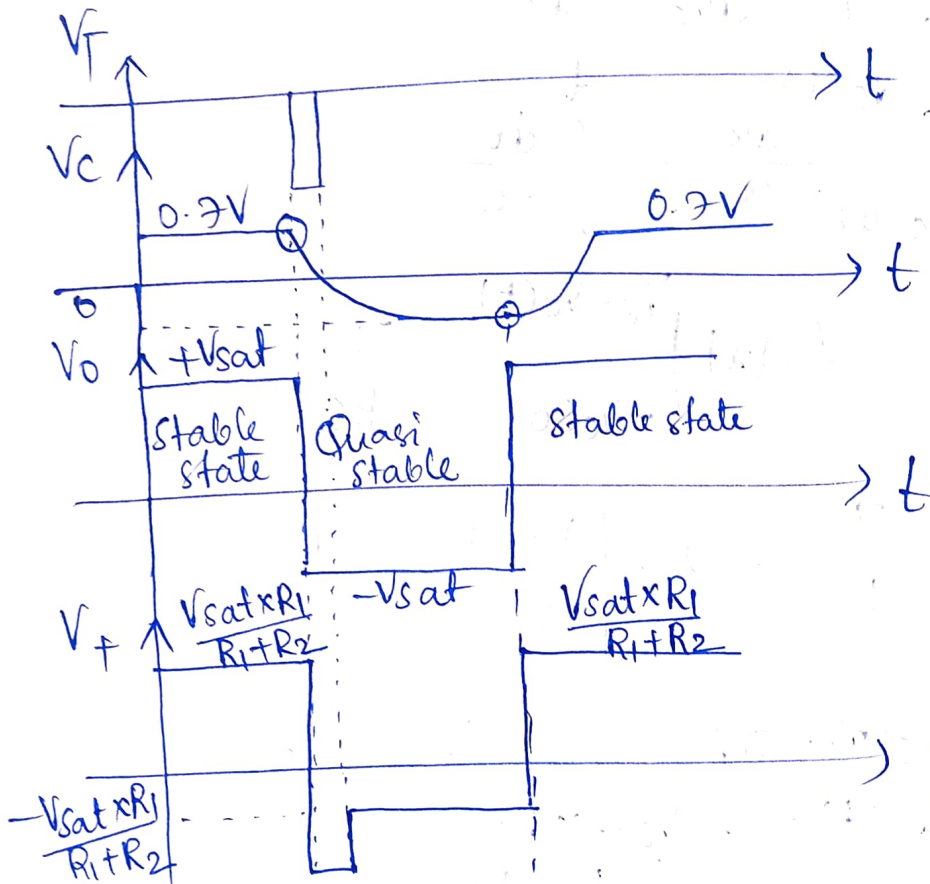 V_T
t
V_C
0.7V
0.7V
t
0
V_O
+Vsat
Stable state
Quasi stable
Stable state
t
-Vsat
V_+
Vsat×R1
R1+R2
Vsat×R1
R1+R2
-Vsat×R1
R1+R2